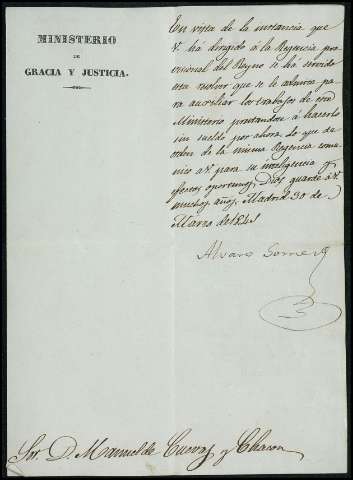 MINISTERIO
DE
GRACIA Y JUSTICIA.
En vista de la instancia que
V. ha dirigido á la Regencia pro
visional del Reyno se ha servido
esta resolver que se le admita pa
ra auxiliar los trabajos de este
Ministerio prestandose á hacerlo
sin sueldo por ahora lo que de
orden de la misma Regencia comu
nico á V. para su inteligencia y
efectos oportunos. Dios guarde á V.
muchos años. Madrid 30 de
Marzo de 1841
Alvaro Gomez
Sor. D. Manuel de Cuevas y Chacon